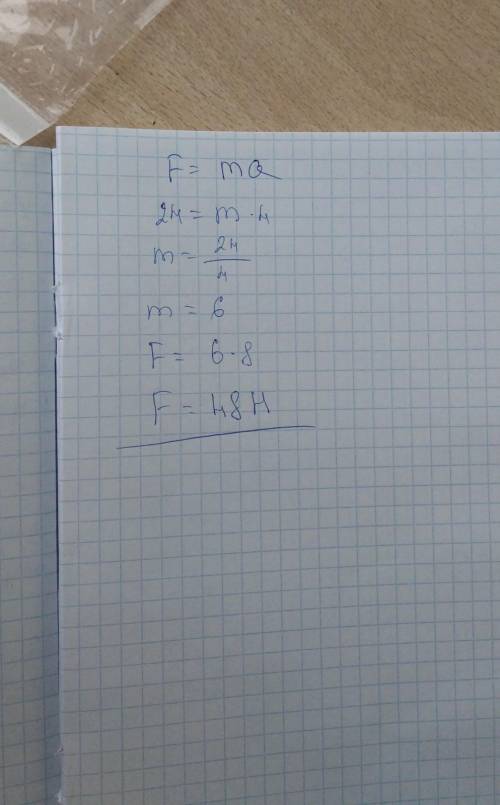 F = ma
24 = m · 4
m = 24/4
m = 6
F = 6 · 8
F = 48 Н